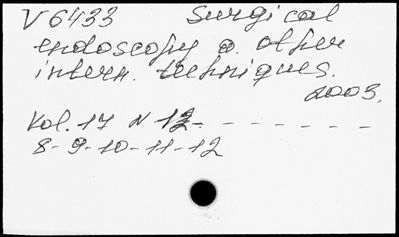 V 6433 Surgical
endoscopy a. other
intern. techniques.
2003.
Vol. 17 N 12 - - - - - - -
8-9-10-11-12